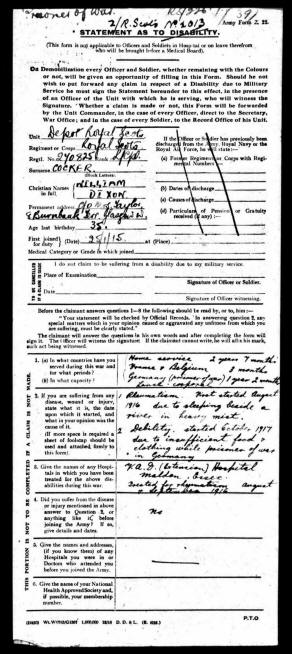 Prisoner of War.
2/R. Scots
Army Form Z. 22.
STATEMENT AS TO DISABILITY.
(This form is not applicable to Officers and Soldiers in Hospital or on leave therefrom
who will be brought before a Medical Board).
On Demobilization every Officer and Soldier, whether remaining with the Colours
or not, will be given an opportunity of filling in this Form. Should he not
wish to put forward any claim in respect of a Disability due to Military
Service he must sign the Statement hereunder to this effect, in the presence
of an Officer of the Unit with which he is serving, who will witness the
Signature. Whether a claim is made or not, this Form will be forwarded
by the Unit Commander, in the case of every Officer, direct to the Secretary,
War Office; and in the case of every Soldier, to the Record Office of his Unit.
Unit Depot Royal Scots
Regiment or Corps Royal Scots
Regtl. No.
Surname COCKER.
(Block Letters)
Christian Names in full WILLIAM
DIXON.
Permanent address
Age last birthday 35.
First joined for duty (Date) 25/1/15 at (Place)
Medical Category or Grade in which joined
If the Officer or Soldier has previously been
discharged from the Army, Royal Navy or the
Royal Air Force, he will state:—
(a) Former Regiments or Corps with Regimental Numbers
(b) Dates of discharge
(c) Causes of discharge
(d) Particulars of Pension or Gratuity received (if any)
TO BE COMPLETED IF A CLAIM IS NOT MADE
I do not claim to be suffering from a disability due to my military service.
Place of Examination
Signature of Officer or Soldier.
Date
Signature of Officer witnessing.
Before the claimant answers questions 1—8 the following should be read by, or to, him :—
"Your statement will be checked by Official Records. In answering question 2, any
special matters which in your opinion caused or aggravated any unfitness from which you
are suffering, must be clearly stated."
The claimant will answer the questions in his own words and after completing the form will
sign it. The Officer will witness the signature. If the claimant cannot write, he will affix his mark,
such act being witnessed.
THIS PORTION IS NOT TO BE COMPLETED IF A CLAIM IS NOT MADE.
1. (a) In what countries have you served during this war and for what periods?
(b) In what capacity?
Home service 2 years 7 months
France & Belgium 8 months
Germany (prisoner of war) 1 year 2 months
Lance corporal
2. If you are suffering from any disease, wound or injury, state what it is, the date upon which it started, and what in your opinion was the cause of it.
(If more space is required a sheet of foolscap should be used and attached firmly to this form).
1 Rheumatism first started August
1916 due to sleeping beside a
river in heavy mist.
2 Debility, started October 1917
due to insufficient food &
clothing while prisoner of war
in Germany
3. Give the names of any Hospitals in which you have been treated for the above disabilities during this war.
V.A.D. (Extension) Hospital
treated for rheumatism August
& September 1916
4. Did you suffer from the disease or injury mentioned in above answer to Question 2, or anything like it, before joining the Army? If so, give details and dates.
No
5. Give the names and addresses, (if you know them) of any Hospitals you were in or Doctors who attended you before you joined the Army.
6. Give the name of your National Health Approved Society and, if possible, your membership number.
P.T.O